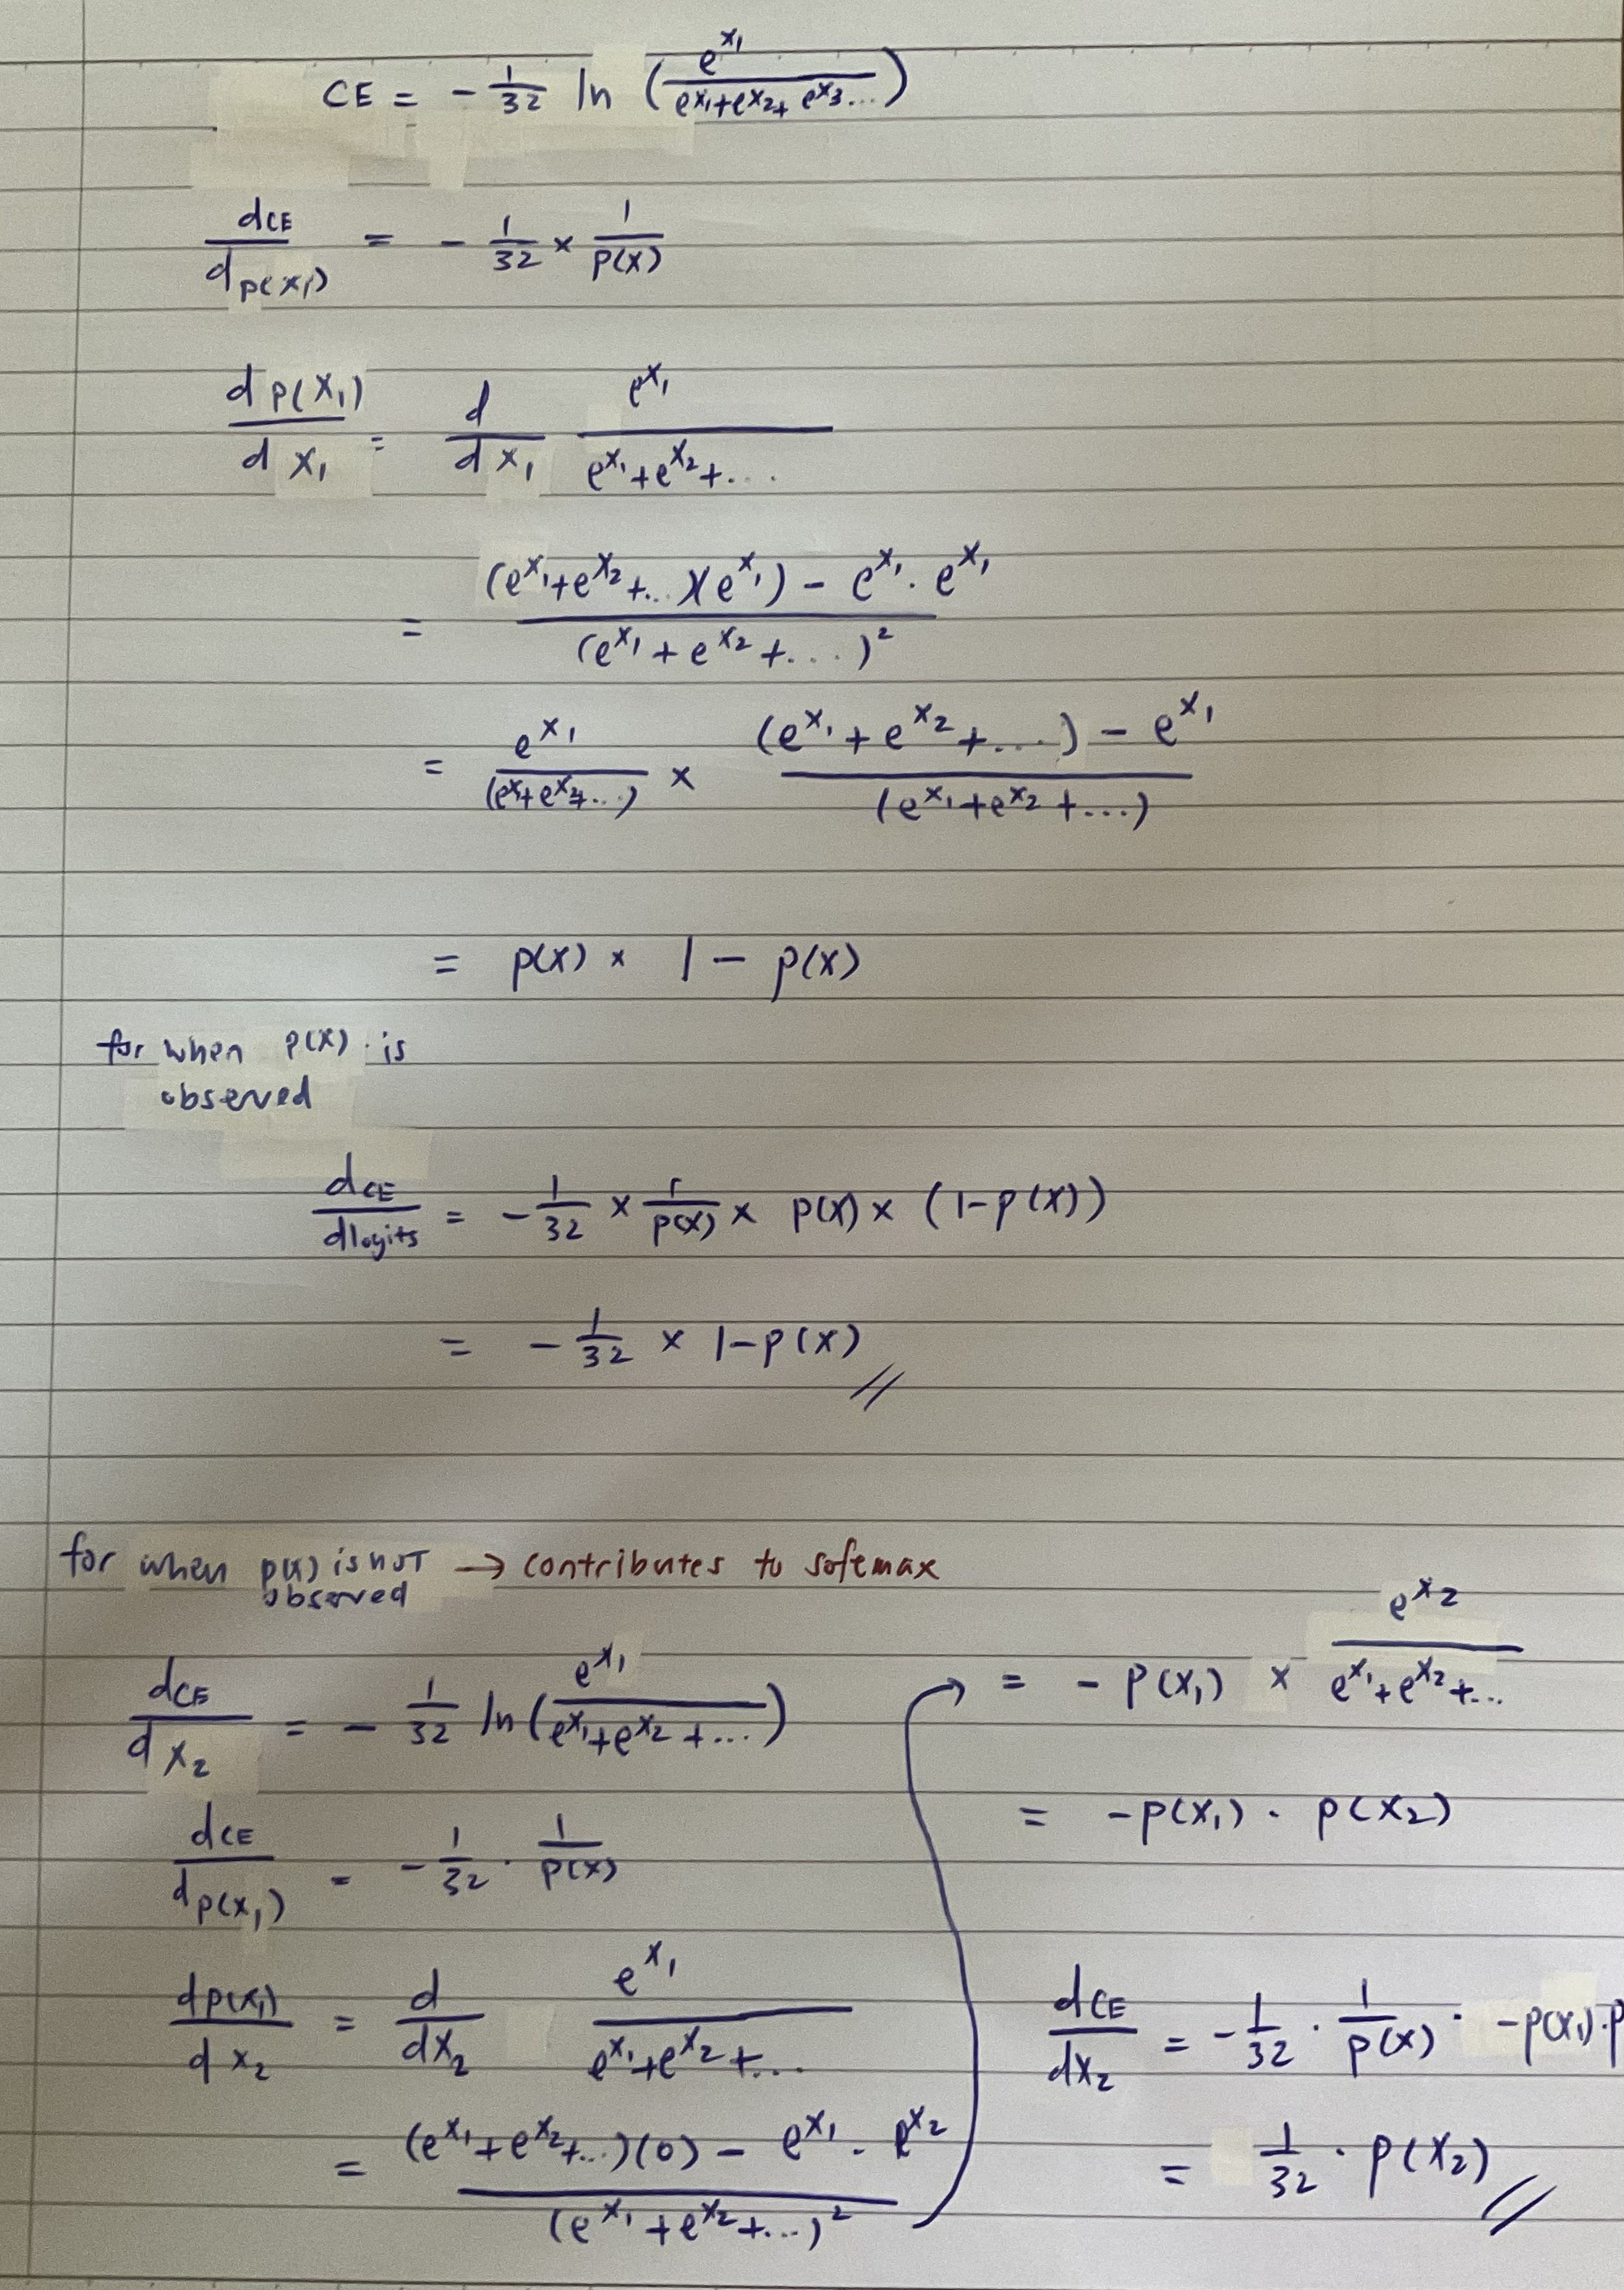 CE = - 1/32 ln (e^x₁ / (e^x₁ + e^x₂ + e^x₃ ...))
dCE / dp(x₁) = - 1/32 × 1/p(x)
dp(x₁) / dx₁ = d/dx₁ e^x₁ / (e^x₁ + e^x₂ + ....)
= ((e^x₁ + e^x₂ + ...)(e^x₁) - e^x₁ · e^x₁) / (e^x₁ + e^x₂ + ....)²
= e^x₁ / (e^x₁ + e^x₂ + ...) × ((e^x₁ + e^x₂ + ....) - e^x₁) / (e^x₁ + e^x₂ + ....)
= p(x) × 1 - p(x)
for when p(x) is
observed
dCE / dlogits = - 1/32 × 1/p(x) × p(x) × (1 - p(x))
= - 1/32 × 1 - p(x) //
for when p(x) is not → contributes to sofemax
observed
dCE / dx₂ = - 1/32 ln (e^x₁ / (e^x₁ + e^x₂ + ...))
dCE / dp(x₁) = - 1/32 · 1/p(x)
dp(x₁) / dx₂ = d/dx₂ e^x₁ / (e^x₁ + e^x₂ + ...)
= ((e^x₁ + e^x₂ + ...)(0) - e^x₁ · e^x₂) / (e^x₁ + e^x₂ + ...)²
= - p(x₁) × e^x₂ / (e^x₁ + e^x₂ + ...)
= - p(x₁) · p(x₂)
dCE / dx₂ = - 1/32 · 1/p(x) · - p(x₁) · p
= 1/32 · p(x₂) //